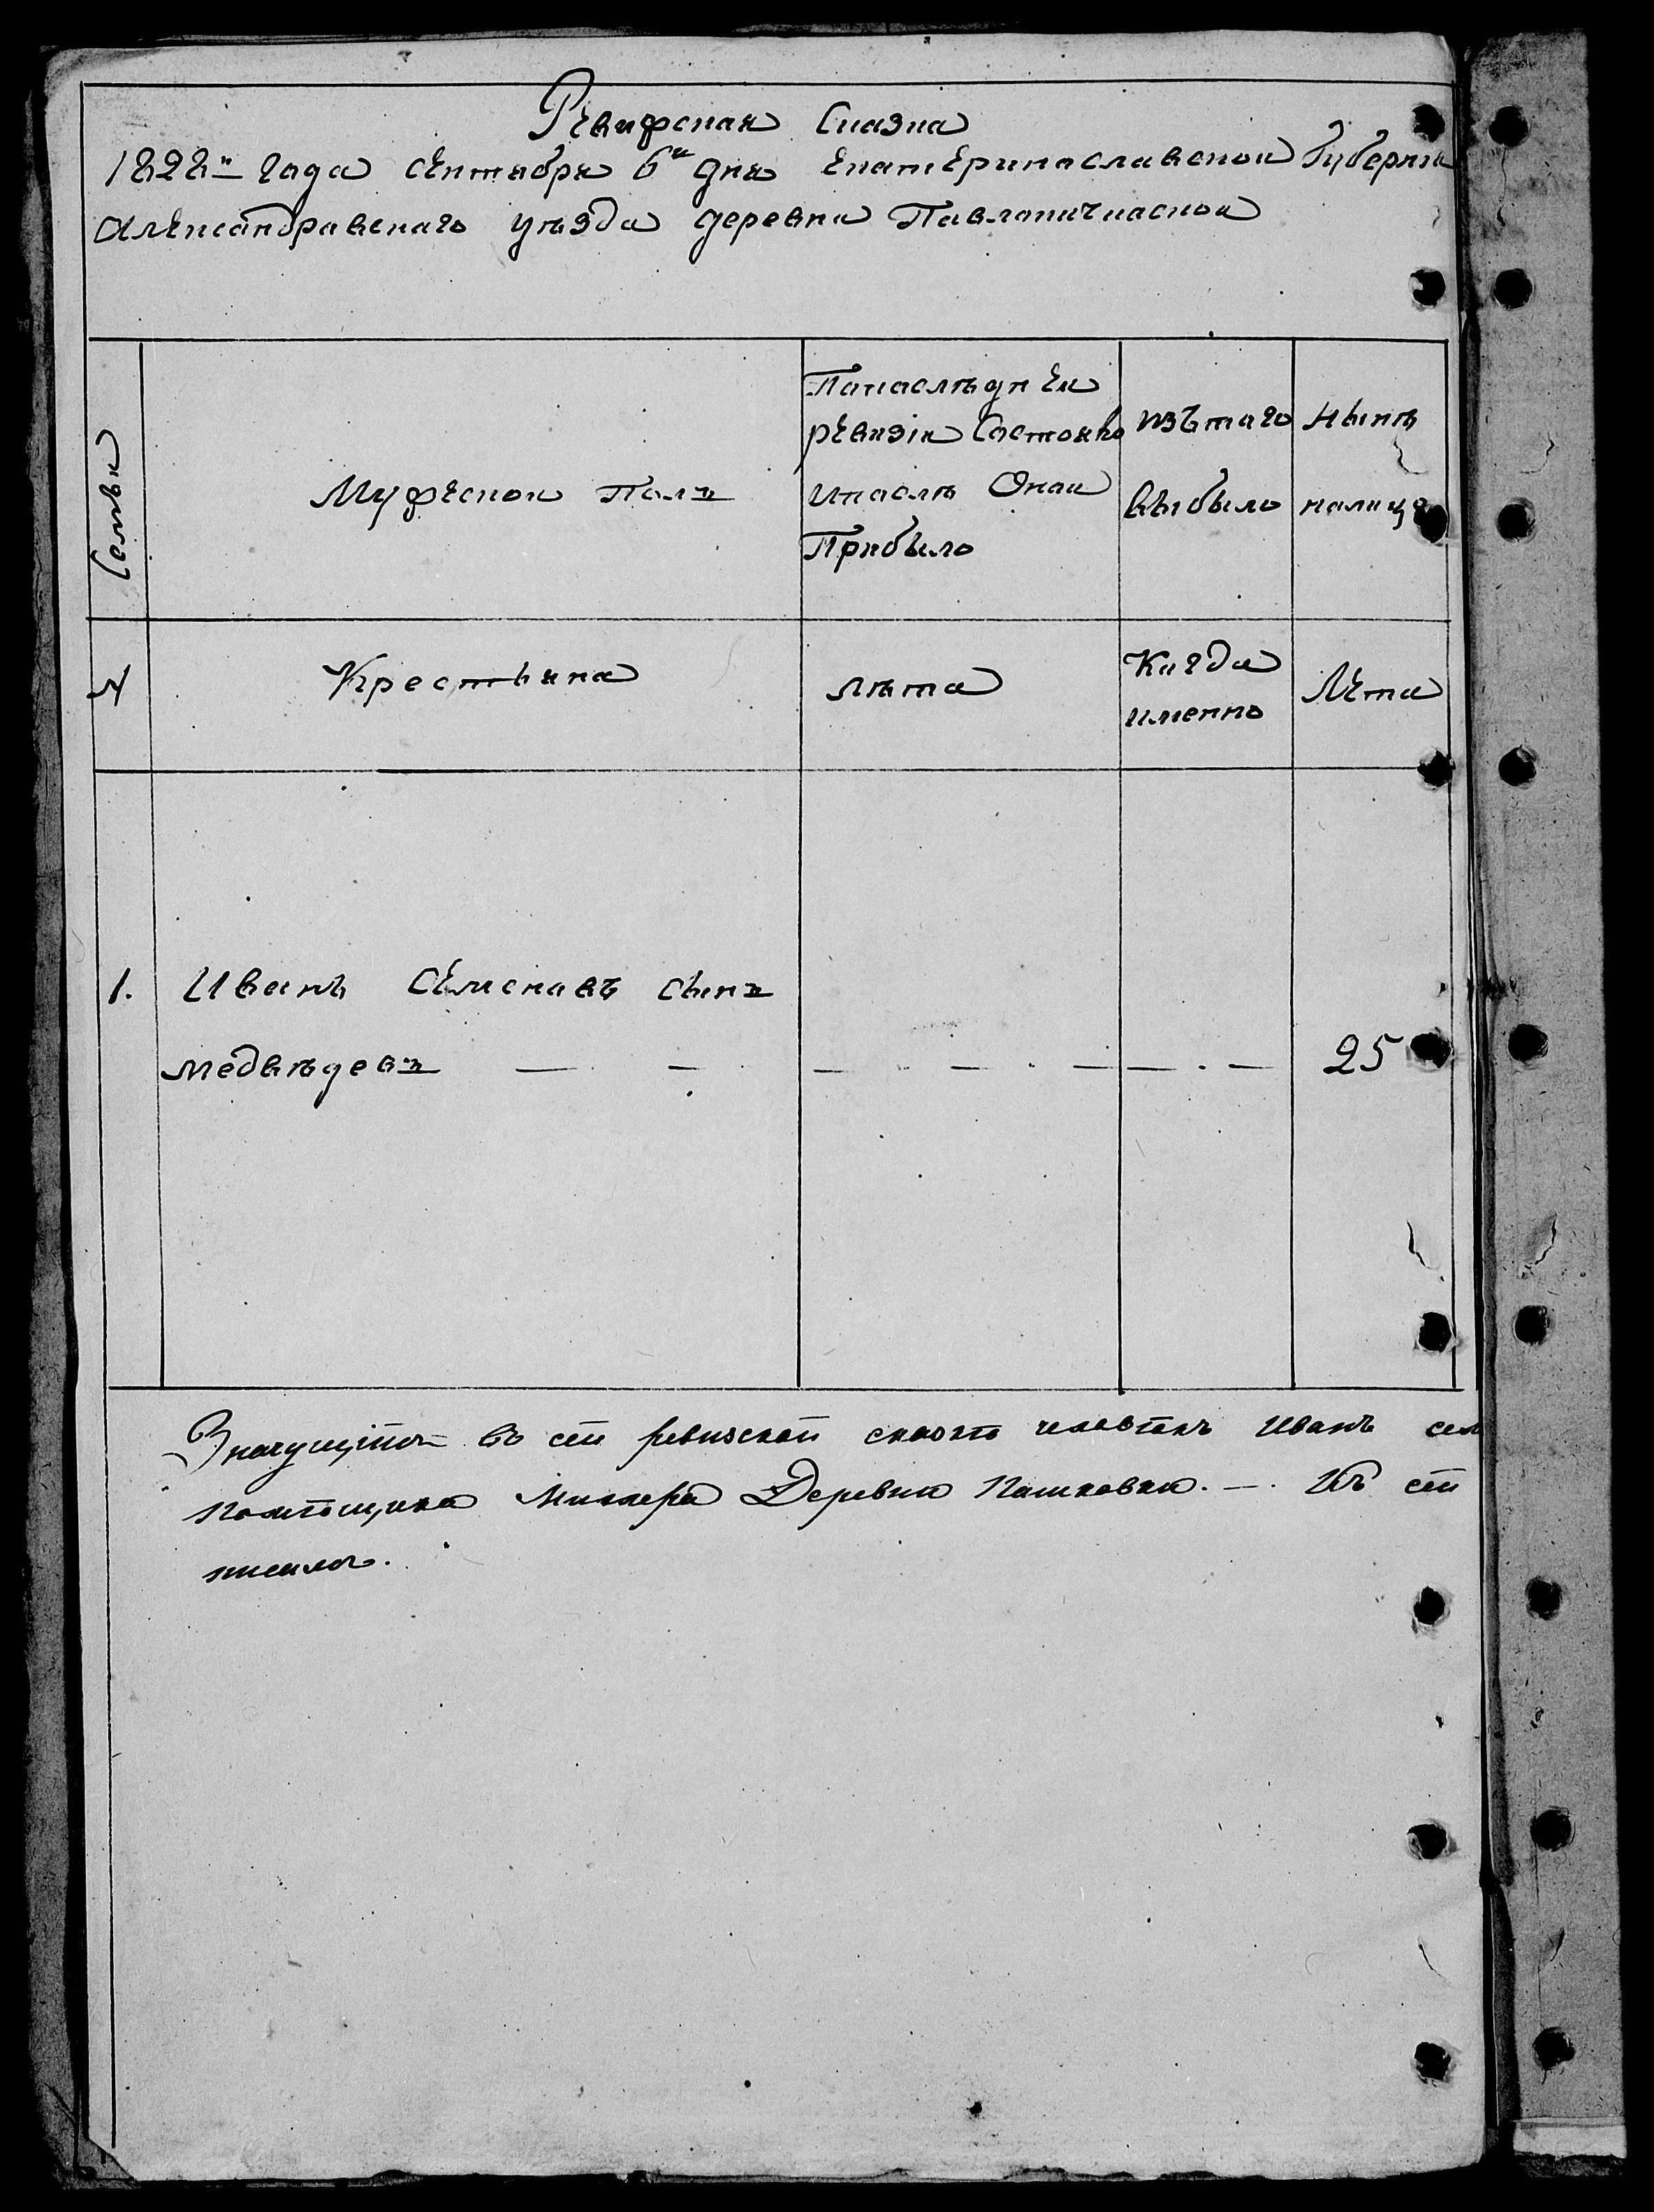 Ревифская Сказка
1828го Года сентября 6го дня Екатеринаславской Губерни
Александравскаго уезда деревни Павлопичкаской
Семьи
Мужеской Полъ
Попаследней
ревизiи Састояло
ипаслѣ Оной
Прибыло
изътаго
выбыло
Нынѣ
налице
№
Крестьяна
лѣта
Кагда
именно
Лета
1. Иванъ Семенавъ сынъ
медвѣдевъ — — — — — — — 25
Значущiйся въ сей ревизской сказкѣ человѣкъ Иванъ сем
помѣщика Миллера Деревни Пашковки. —. Къ сей